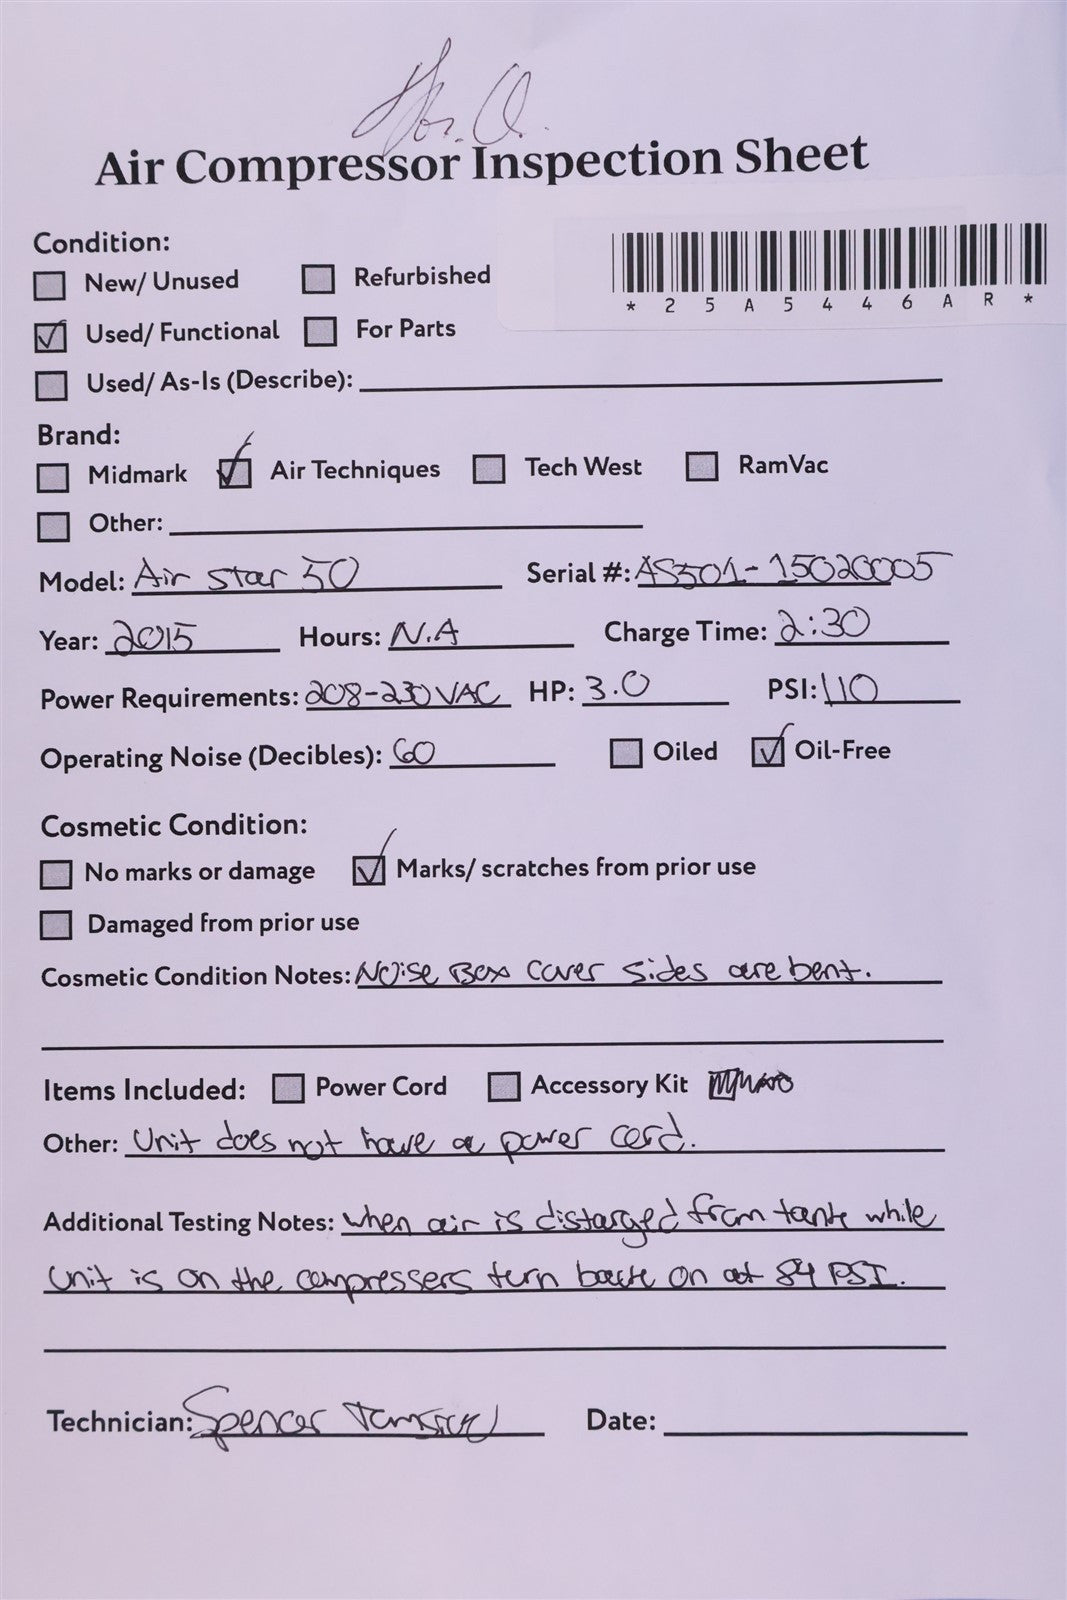 Air Compressor Inspection Sheet
Condition:
New/ Unused Refurbished
* 2 5 A 5 4 4 6 A R *
Used/ Functional For Parts
Used/ As-Is (Describe):
Brand:
Midmark Air Techniques Tech West RamVac
Other:
Model: Air star 50 Serial #: AS501-15020005
Year: 2015 Hours: N.A Charge Time: 2:30
Power Requirements: 208-230 VAC HP: 3.0 PSI: 110
Operating Noise (Decibles): 60 Oiled Oil-Free
Cosmetic Condition:
No marks or damage Marks/ scratches from prior use
Damaged from prior use
Cosmetic Condition Notes: Noise Box cover sides are bent.
Items Included: Power Cord Accessory Kit
Other: Unit does not have a power cord.
Additional Testing Notes: when air is distarged from tank while
Unit is on the compressers turn back on at 84 PSI.
Technician: Spencer Date: